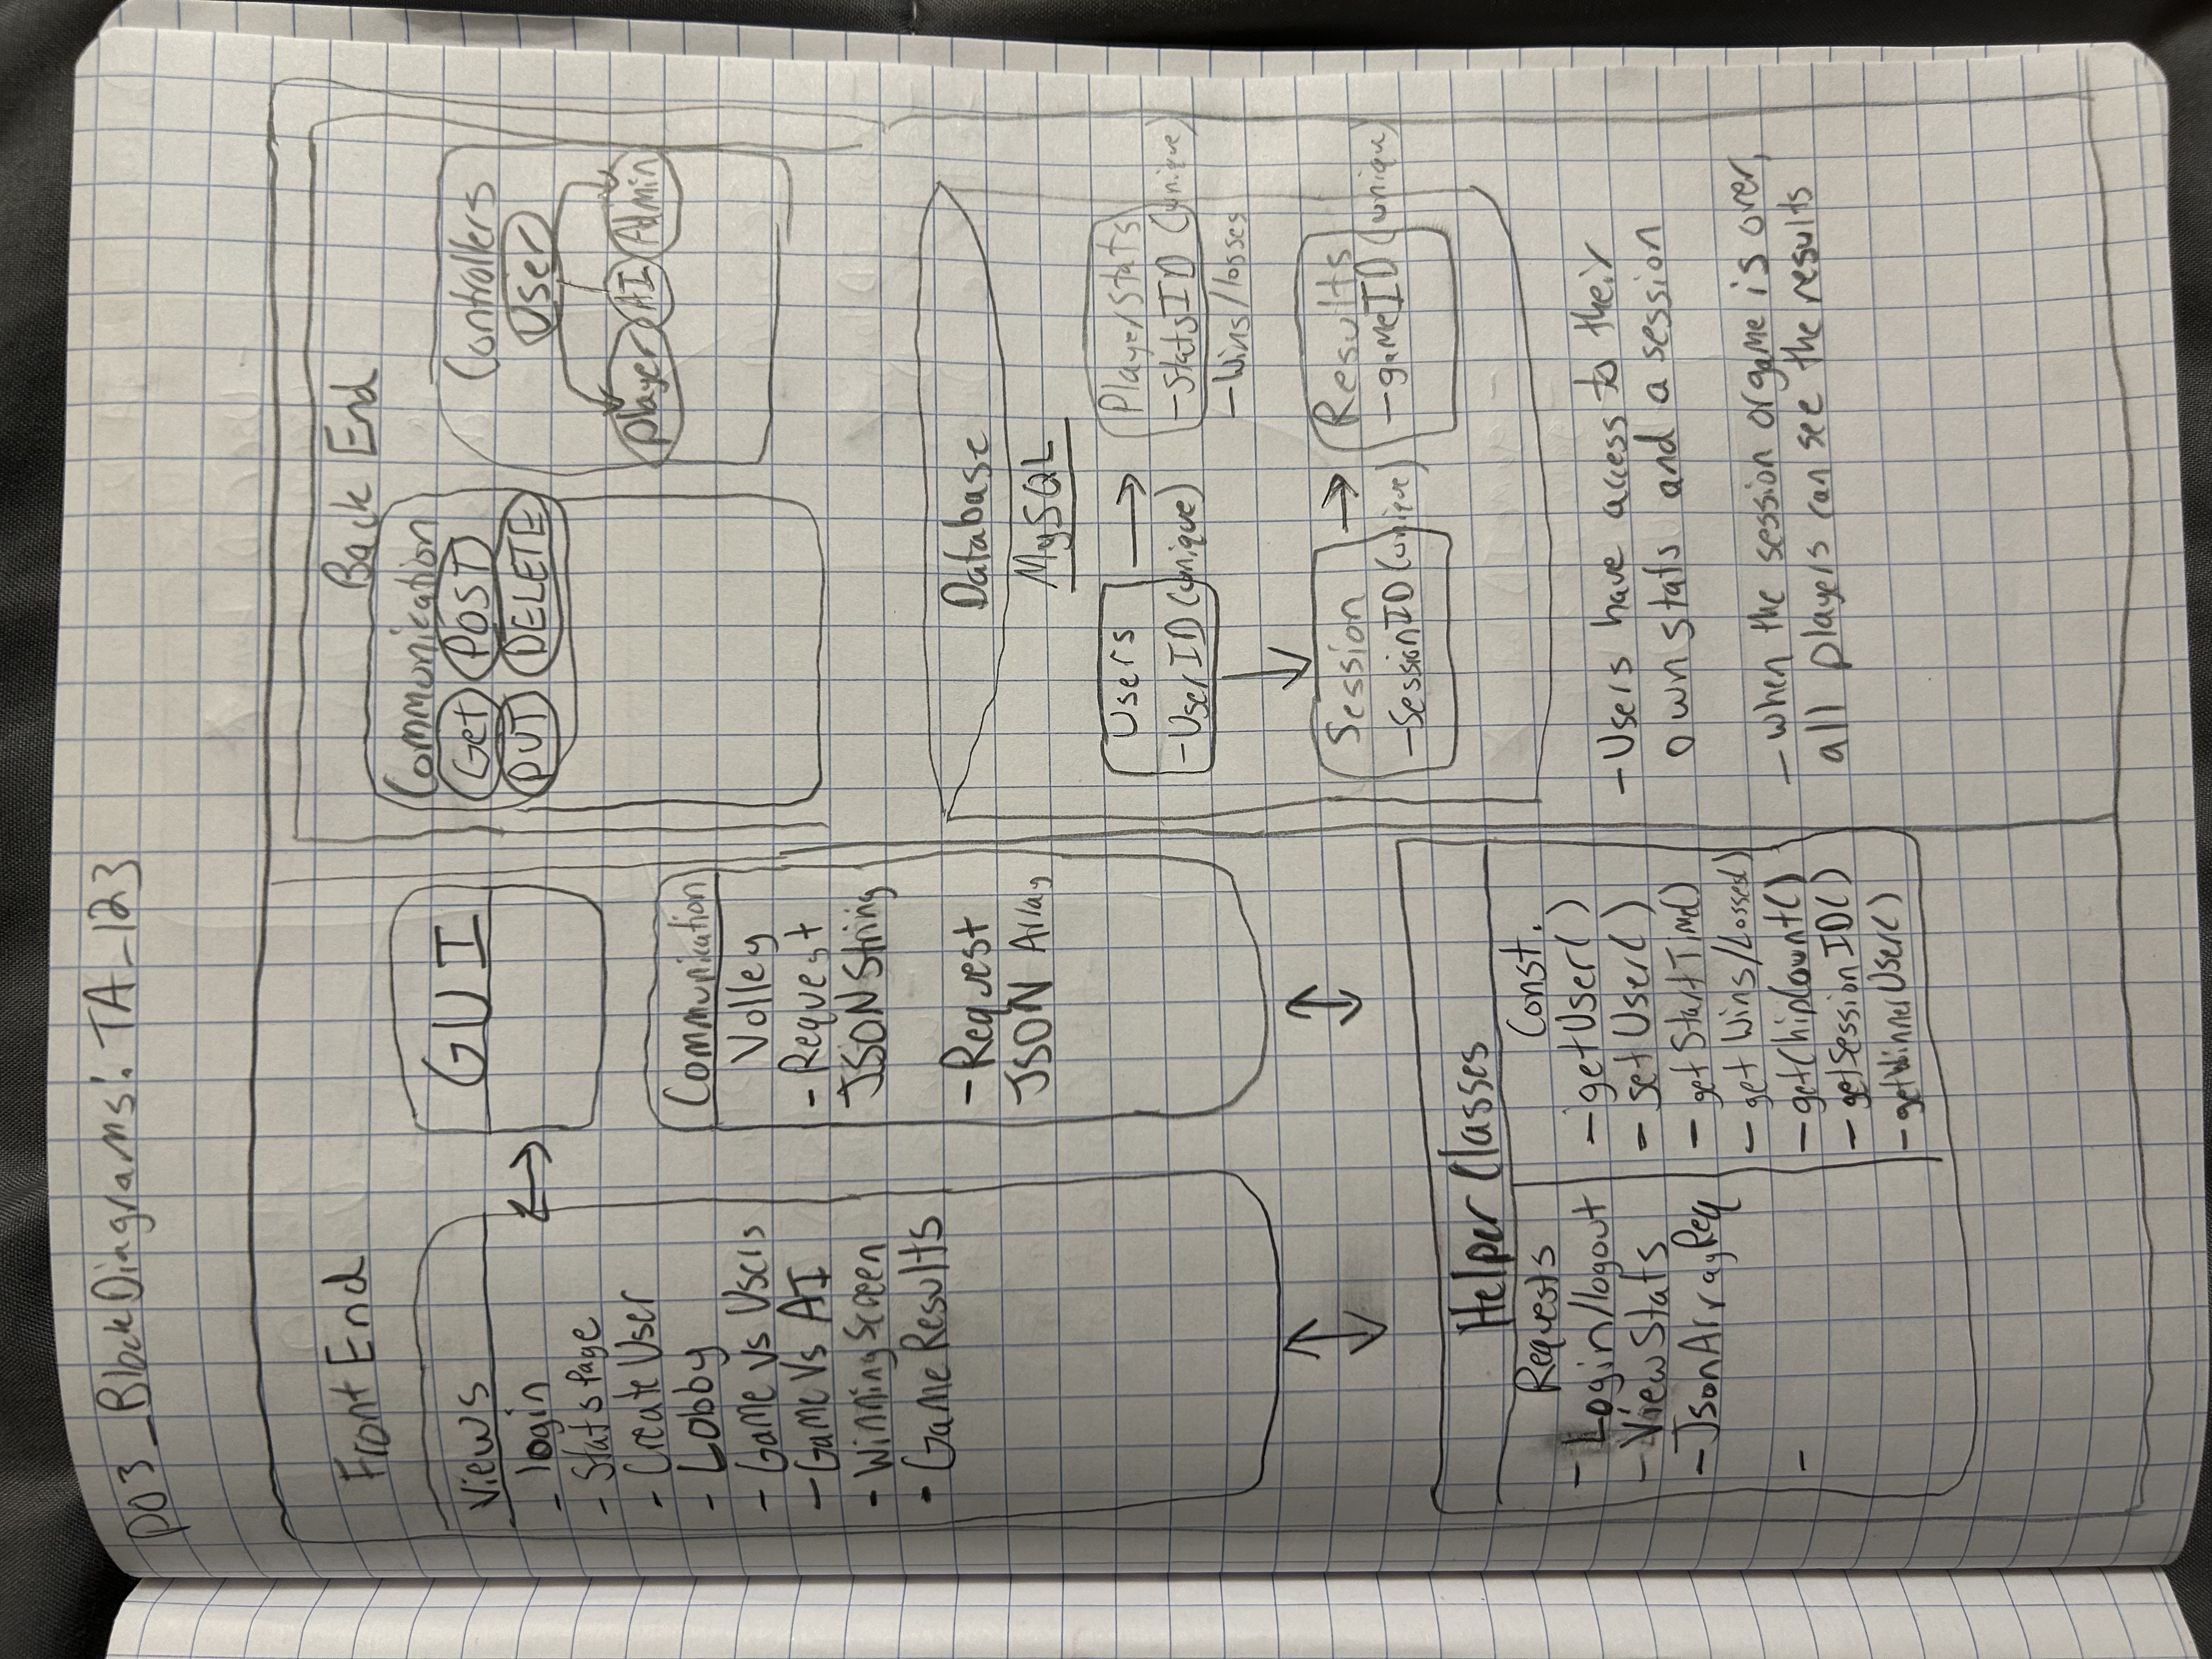 P03_BlockDiagrams: TA_123
Front End
Views
- login
- Stats Page
- Create User
- Lobby
- Game vs Users
- Game Vs AI
- Winning Screen
- Game Results
GUI
Communication
Volley
- Request
JSON String
- Request
JSON Array
Helper Classes
Requests
- Login/logout
- View Stats
- JsonArrayReq
-
Const.
- getUser()
- setUser()
- getStartTime()
- get Wins/Losses()
- getChipCount()
- getSessionID()
- getWinnerUser()
Back End
Communication
Get POST
PUT DELETE
Controllers
User
Player AI Admin
Database
MySQL
Users
- UserID (unique)
PlayerStats
- StatsID (unique)
- Wins/losses
Session
- SessionID (unique)
Results
- gameID (unique)
- Users have access to their
own stats and a session
- when the session or game is over,
all players can see the results